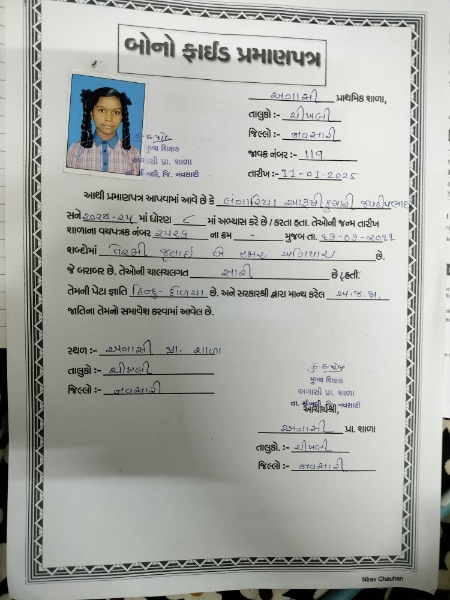 બોનો ફાઈડ પ્રમાણપત્ર
અગાસી પ્રાથમિક શાળા,
તાલુકો :- ચીખલી
જિલ્લો :- નવસારી
જાવક નંબર :- 119
તારીખ :- 11-01-2025
મુખ્ય શિક્ષક
અગાસી પ્રા. શાળા
જિ. નવસારી
આથી પ્રમાણપત્ર આપવામાં આવે છે કે
સને ૨૦૨૪-૨૫ માં ધોરણ ૮ માં અભ્યાસ કરે છે / કરતા હતા. તેઓની જન્મ તારીખ
શાળાના વયપત્રક નંબર ના ક્રમ મુજબ તા. ૧૩-૦૭-૨૦૧૧
શબ્દોમાં તેરમી જુલાઈ બે હજાર અગિયાર છે.
જે બરાબર છે. તેઓની ચાલચલગત સારી છે / હતી.
તેમની પેટા જ્ઞાતિ હિન્દુ- છે. અને સરકારશ્રી દ્વારા માન્ય કરેલ અ.જ.જા.
જાતિના તેમનો સમાવેશ કરવામાં આવેલ છે.
સ્થળ :- અગાસી પ્રા. શાળા
તાલુકો :- ચીખલી
જિલ્લો :- નવસારી
મુખ્ય શિક્ષક
અગાસી પ્રા. શાળા
તા. ચીખલી, જિ. નવસારી
આચાર્યશ્રી,
અગાસી પ્રા. શાળા
તાલુકો. :- ચીખલી
જિલ્લો :- નવસારી
Nirav Chauhan